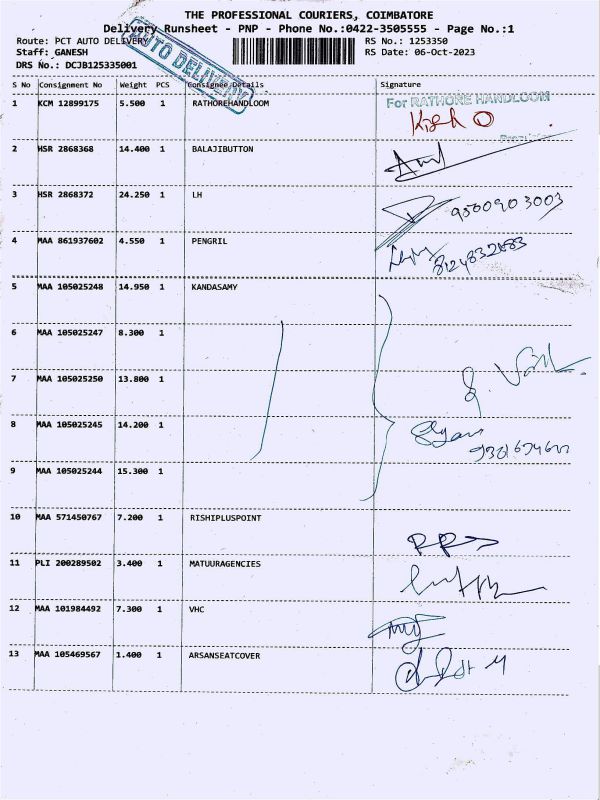 THE PROFESSIONAL COURIERS, COIMBATORE
Delivery Runsheet - PNP - Phone No.:0422-3505555 - Page No.:1
Route: PCT AUTO DELIVERY RS No.: 1253350
Staff: GANESH RS Date: 06-Oct-2023
DRS No.: DCJB125335001
AUTO DELIVERY
S No Consignment No Weight PCS Consignee Details Signature
1 KCM 12899175 5.500 1 RATHOREHANDLOOM
For RATHORE HANDLOOM
2 HSR 2868368 14.400 1 BALAJIBUTTON
3 HSR 2868372 24.250 1 LH
4 MAA 861937602 4.550 1 PENGRIL
5 MAA 105025248 14.950 1 KANDASAMY
6 MAA 105025247 8.300 1
7 MAA 105025250 13.800 1
8 MAA 105025245 14.200 1
9 MAA 105025244 15.300 1
10 MAA 571450767 7.200 1 RISHIPLUSPOINT
11 PLI 200289502 3.400 1 MATUURAGENCIES
12 MAA 101984492 7.300 1 VHC
13 MAA 105469567 1.400 1 ARSANSEATCOVER